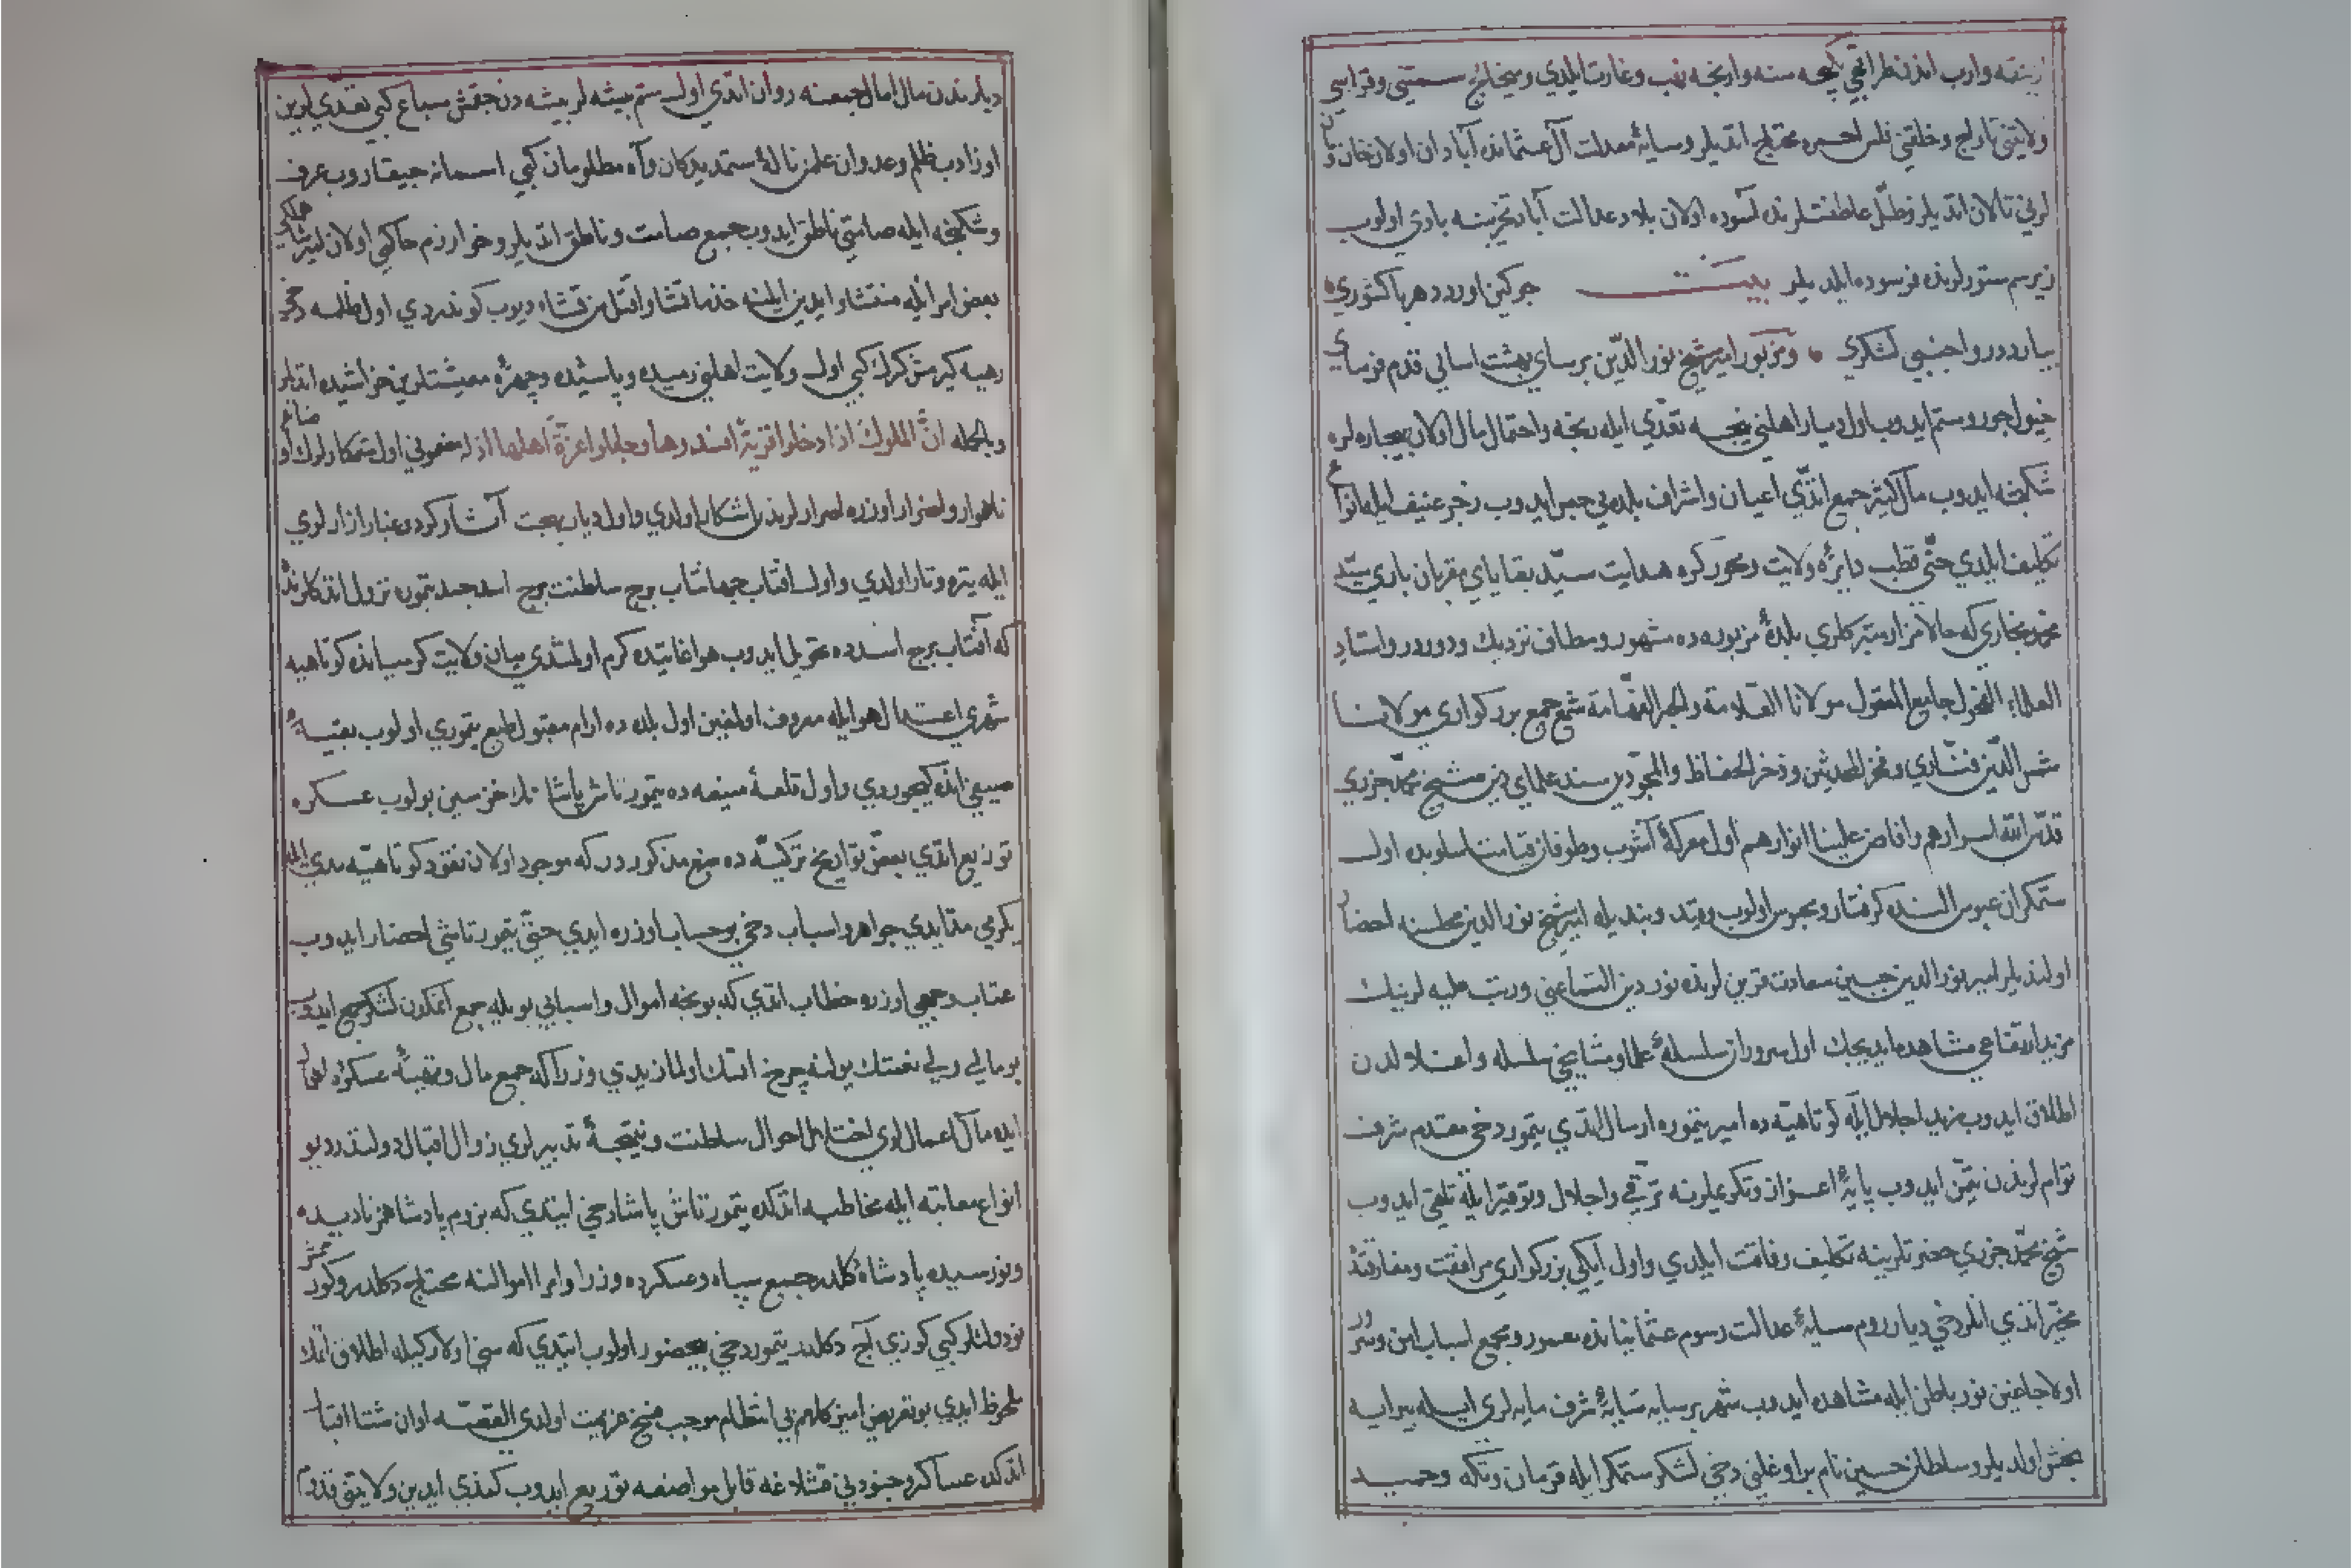 ازنیقه واروب اندن طراقچی یکیجه سنه واریجه نهب وغارت ایلدی ومیخالیج سمتنی وقراسی
ولایتنی تاراج وخلقنی فلس احمره محتاج اتدیلر وسایهٔ معدلت آل عثمانده آبادان اولان خان ومان
لرنی تالان اتدیلر وظلّ عاطفتلرنده آسوده اولان بلاد عدالت آباد تخریبنه بادی اولوب
زیر سم ستورلرنده فرسوده ایلدیلر بیت جوکین اورد دهر با کشوری
بیارد درو اجنبی لشکری ٭ ومزبور امیر شیخ نور الدّین برسای بهشت اسایی قدم فرسای
خیول جور وستم ایدوب اول دیار اهلنی نیجه تعدّی ایله رنجه واحتمال مال اولان بیچاره لره
شکنجه ایدوب مال کثیر جمع اتدی اعیان واشراف بلده یی حبس ایدوب زجر عنیف ایله انواع
تکلیف ایلدی حتّی قطب دایرهٔ ولایت ومحور کره هدایت سیّد بقایای مقربان باری سیّد
محمد بخاری که حالا مزار متبرکلری بلدهٔ مزبوره ده مشهور ومطاف نزدیك ودوردر واستاد
العلماء الفحول جامع المعقول مولانا العلامة والحبر الفهّامة شمع جمع بزرکواری مولانا
شمس الدّین فنّاری وفخر المحدثین وذخر الحفاظ والمجوّدین سند علمای دین شیخ محمّد جزری
قدّس الله اسرارهم وافاض علینا انوارهم اول معرکهٔ آشوب وطوفان قیامت اسلوبده اول
ستمکران عبوس السنده کرفتار ومحبوس اولوب وقید وبند یله امیر شیخ نور الدین مجلسنه احضار
اولندیلر امیر نور الدین جبین سعادت قرین لرنده نور دین التماعنی ورتب علیه لرینك
مزید ارتفاعی مشاهده ایدیجك اول سرورانِ سلسلهٔ علما ومشایخی سلسله واغلالدن
اطلاق ایدوب مزید اجلال ایله کوتاهیّه ده امیر تیموره ارسال اتدی تیمور دخی مقدم شرف
توأم لرندن تیمّن ایدوب پایهٔ اعزاز وتکریملرینه ترقّی واجلال وتوقیر ایله تلقی ایدوب
شیخ محمّد جزری حضرتلرینه تکلیف رفاقت ایلدی واول ایکی بزرکواری مرافقت ومفارقتده
مخیّر اتدی انلر دخی دیار روم سایهٔ عدالت رسوم عثمانیانده معمور ومجمع اسباب امن وسرور
اولاجاغین نور باطن ایله مشاهده ایدوب شهر برسایه سایهٔ شرف مایه لری ایله پیرایه
بخش اولدیلر وسلطان حسین نام بر اوغلنی دخی لشکر ستمکر ایله قرمان وتکه وحمید
دیارندن مال امال جمعنه روان اتدی اول ستم پیشه لر بیشه دن چقمش سباع کبی تعدی لرین
اوزادوب ظلم وعدوان علمن نالهٔ ستمدیدکان وآه مظلومان کبی اسمانه چیقاروب عرف
وشکنجه ایله صامتی ناطق ایدوب جمع صامت وناطق اتدیلر وخوارزم حاکمی اولان امیر شاه ملکی
بعض امرا ایله منتشا وایدین ایلینه خذ ما تشا واقتل من تشاء دیوب کوندردی اول ظلمه دخی
رهیه کیرمش کرك کبی اول ولایت اهلنی رمیده وپاشیده وچهرهٔ معیشتلرین خراشیده اتدیلر
وبالجمله انّ الملوك اذا دخلوا قریةً افسدوها وجعلوا اعزّة اهلها اذلّه مضمونی اول ستمکارلرك اوضاع
ناهموار واضرار اوزره اصرارلرندن اشکار اولدی واول دیار بهجت آثار کرد وغبار ازارلری
ایله تیره وتار اولدی واول افتاب جهانتاب برج سلطنت برج اسد جسد تیموره نزول اتدکلرنده
که آفتاب برج اسدده تحویل ایدوب هوا غایتده کرم اولمشدی میان ولایت کرمیانده کوتاهیه
شهری اعتدال هوا ایله معروف اولمغین اول بلده ده ارام مقبول طبع تیموری اولوب بقیه
صیفی انده کچوردی واول قلعهٔ منیعه ده تیمورتاش پاشانك خزینه سین بولوب عسکره
توزیع اتدی بعض تواریخ ترکیّه ده مذکوردر که موجود اولان نقود کوتاهیّه مدی ایله
یکرمی مد ایدی جواهر واسباب دخی بو حساب اوزره ایدی حتّی تیمورتاشی احضار ایدوب
عتاب وجهی اوزره خطاب اتدی که بو نیجه اموال واسبابی بویله جمع اتمکدن لشکر جمع ایدوب
بو مالی ولی نعمتك یولنه خرج اتسك اولمازمیدی وزرا که جمع مال وتقیهٔ عسکرده اهمال
ایده مآل اعمال لری اختلال احوال سلطنت ونتیجهٔ تدبیرلری زوال اقبال دولتدر دیو
انواع معاتبه ایله مخاطبه اتدکده تیمورتاش پاشا دخی ایتدی که بزوم پادشاهمز نادیده
ونورسیده پادشاه دکلدر جمیع سپاه وعسکرده وزرا وامرا اموالنه محتاج دکلدر وکورمش
نودولتلر کبی کوزی آج دکلدر تیمور دخی بیحضور اولوب ایتدی که سنی اولادکیله اطلاق اتمك
ملحوظ ایدی بو تعریض آمیز کلام بی انتظام موجب فسخ عزیمت اولدی القصّه اوان شتا اقبال
اتدکده عساکر وجنودینی قشلاغه قابل مواضعه توزیع ایدوب کندی ایدین ولایتی قدوم